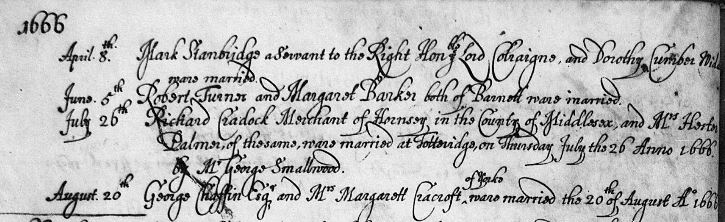 1666
April. 8th. Mark Stanbridge a Servant to the Right Honble Lord Colraigne, and Dorothy Cumber
ware married.
June. 5th Robert Turner and Margaret Barker both of Barnett ware married.
July 26th Richard Cradock Merchant of Hornsey in the County of Middlesex, and Mrs Hester
Palmer, of the same, ware married at Totteridge, on Thursday July the 26 Anno 1666.
by Mr George Smallwood.
of Yorke
August. 20th George Chaffin Esqr and Mrs Margarett Cracroft, ware married the 20th of August Ao 1666